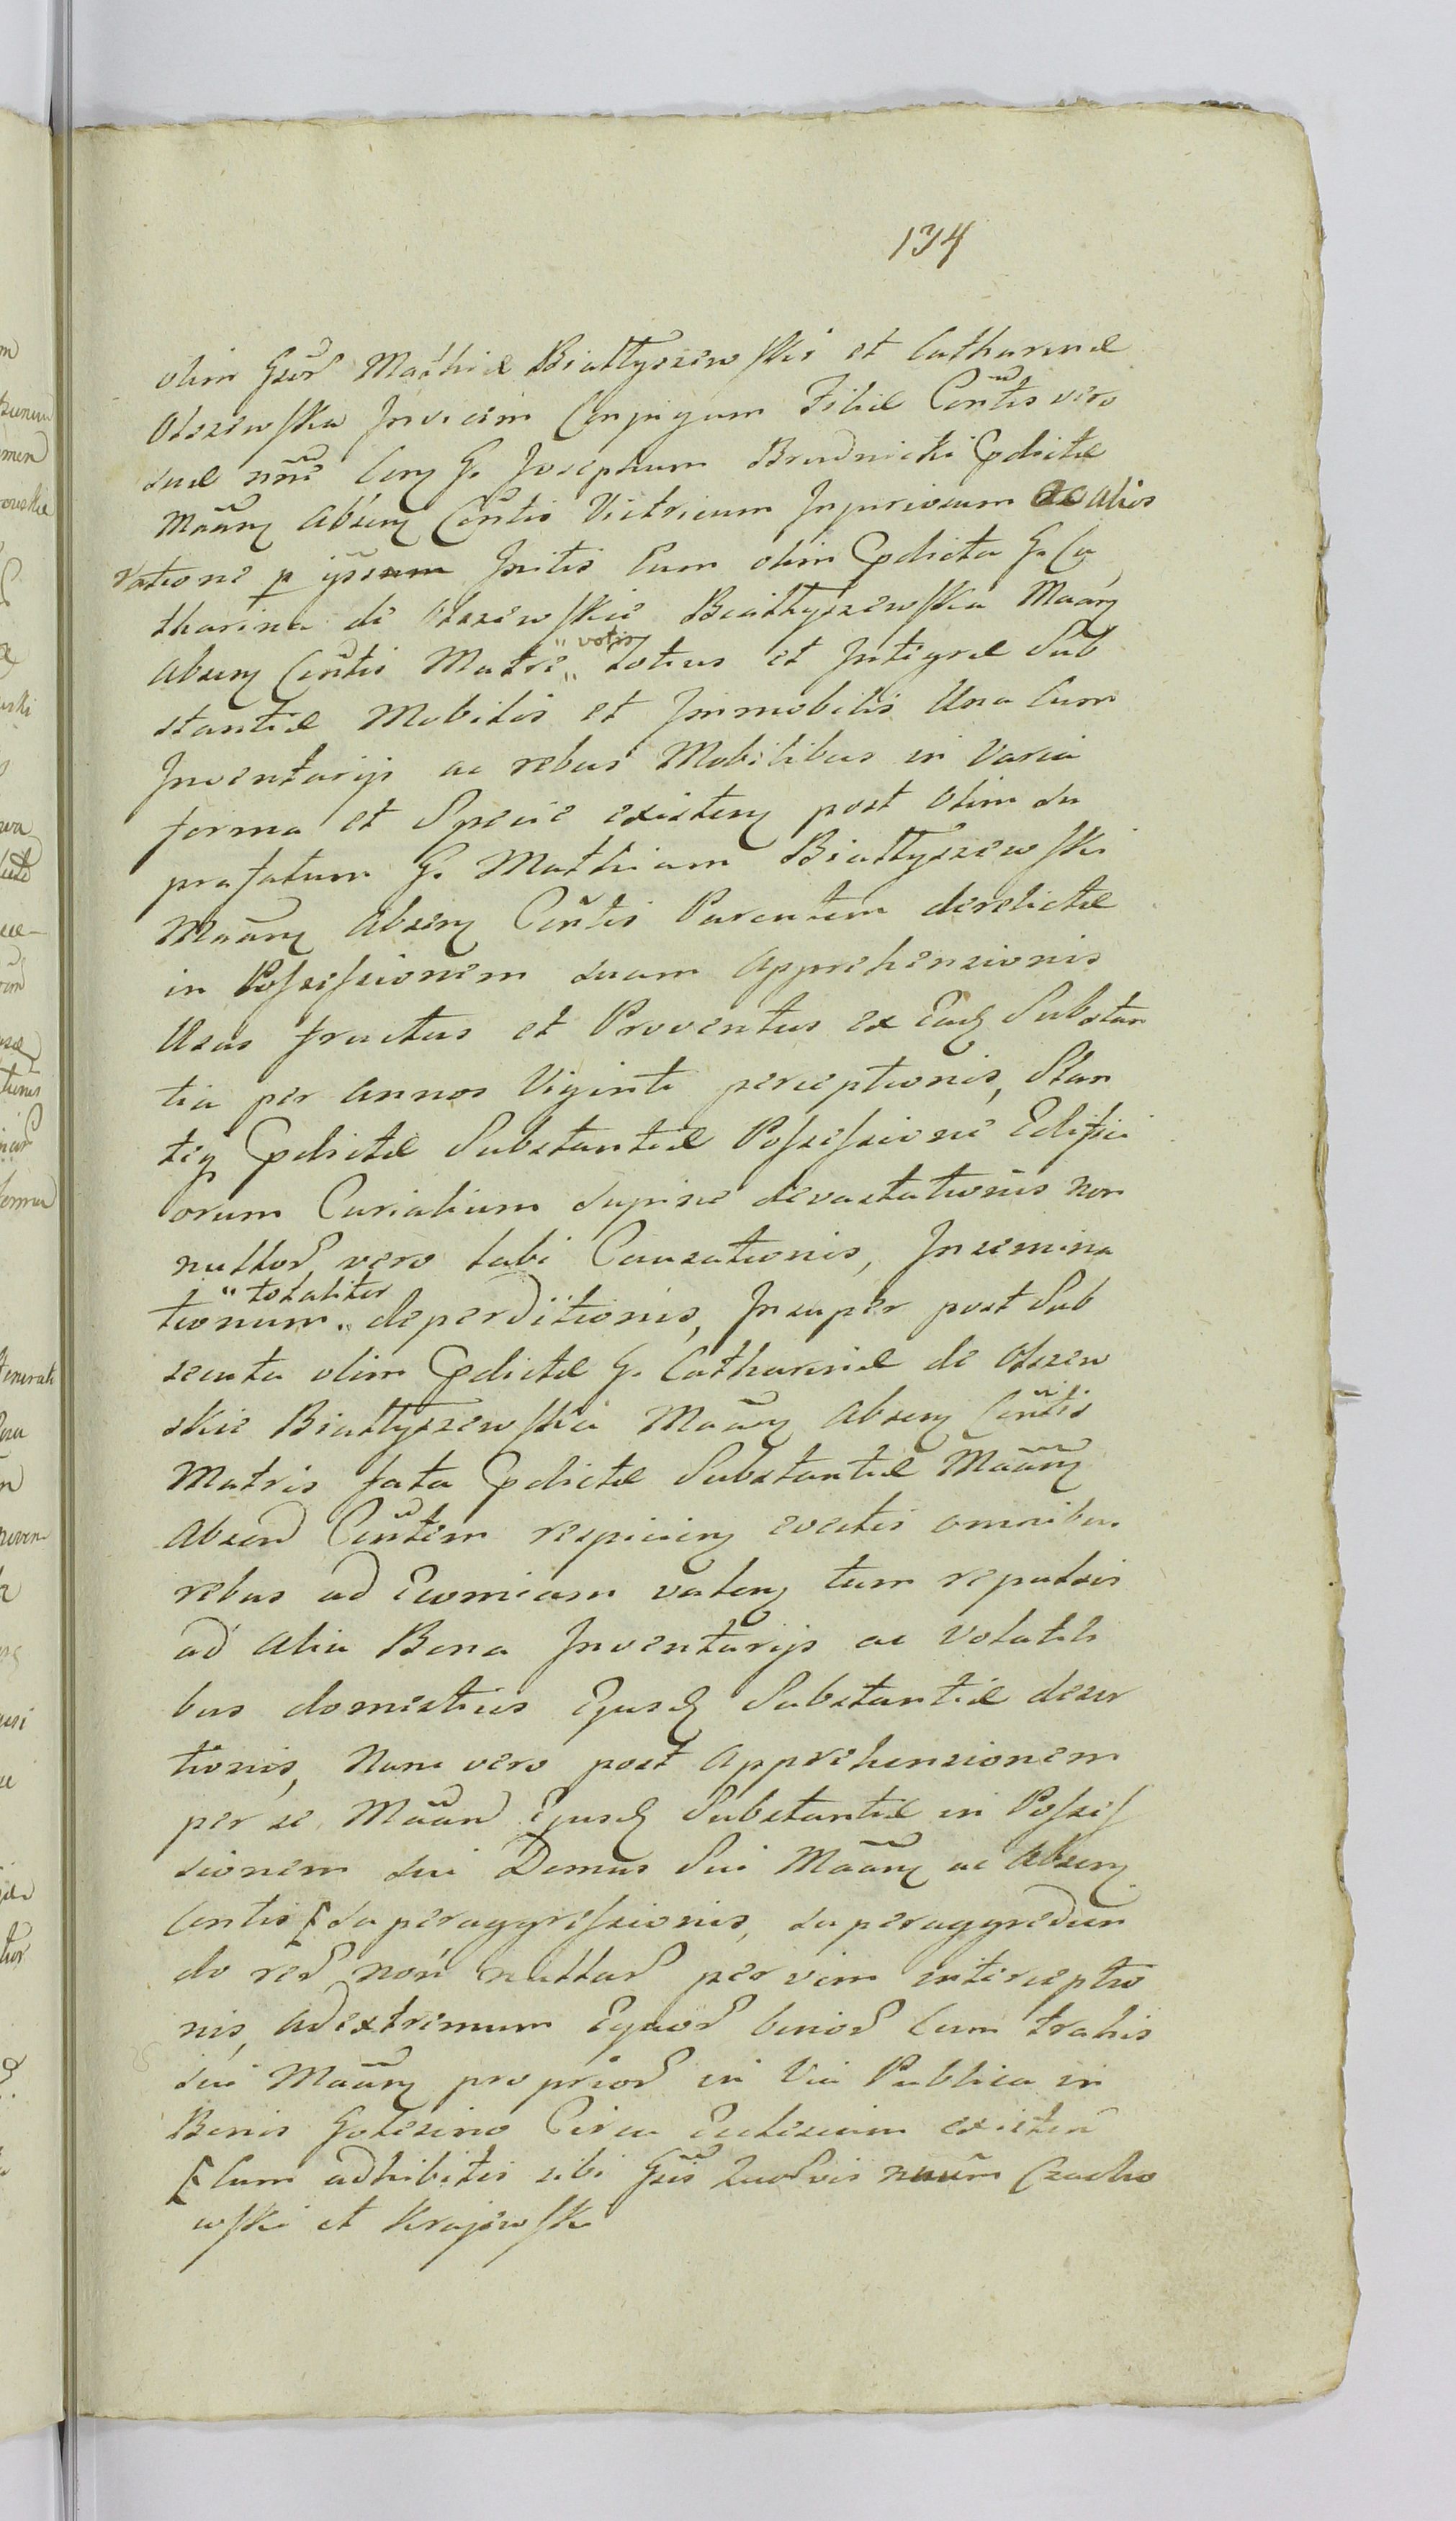 134
olim Gsor Mathiæ Białłyszewski et Catharinæ
Olszewska Invicem Conjugum Filiæ Contis vero
suæ nnie Conz G. Josephum Brudnicki Pdictæ
Maanz Absenz Contis Vitricum Injuriosum ac alias
ratione p ipsum Initis Cum olim Pdicta G. Ca
tharina de Olszewskie Białłyszewska Maanz
Absenz Contis Matre " votis totius et Integræ Sub
stantiæ Mobilis et Immobilis Una Cum
Inventarijs ac rebus Mobilibus in Varia
forma et Specie existenz post olim su
prafatum G. Mathiam Białłyszewski
Maanz Absenz Contis Parentem derelictæ
in Possessionem suam Apprehensionis
Usus fructus et Proventus ex Eadz Substan
tia per Annos Viginti perceptionis, Stan
teq Pdictæ Substantiæ Possessione Edifici
orum Curialium supine devastationis non
nullor vero labi Causationis, Insemina
tionum " totaliter deperditionis, Insuper post Sub
secuta olim Pdictæ G. Catharinæ de Olszew
skie Białłyszewska Maanz Absenz Contis
Matris fata Pdictæ Substantiæ Maanz
Absen Contem respicienz evectis omnibus
rebus ad Economiam valenz tum repulsis
ad alia Bona Inventarijs ac Volatili
bus domesticis Ejusdz Substantiæ deser
tionis, Nunc vero post Apprehensionem
per se Maan Ejusdz Substantiæ in Posses
sionem sui Domus Sui Maanz ac Absenz
Contis superaggressionis, superaggredien
do rer non nullar per vim interceptio
nis, ad extremum Equor binor Cum trahis
sui Maanz proprior in Via Publica in
Bonis Golesino Circa Ecclesiam existen
Cum adhibitis sibi Gsis Czacho
wski et Krajewski